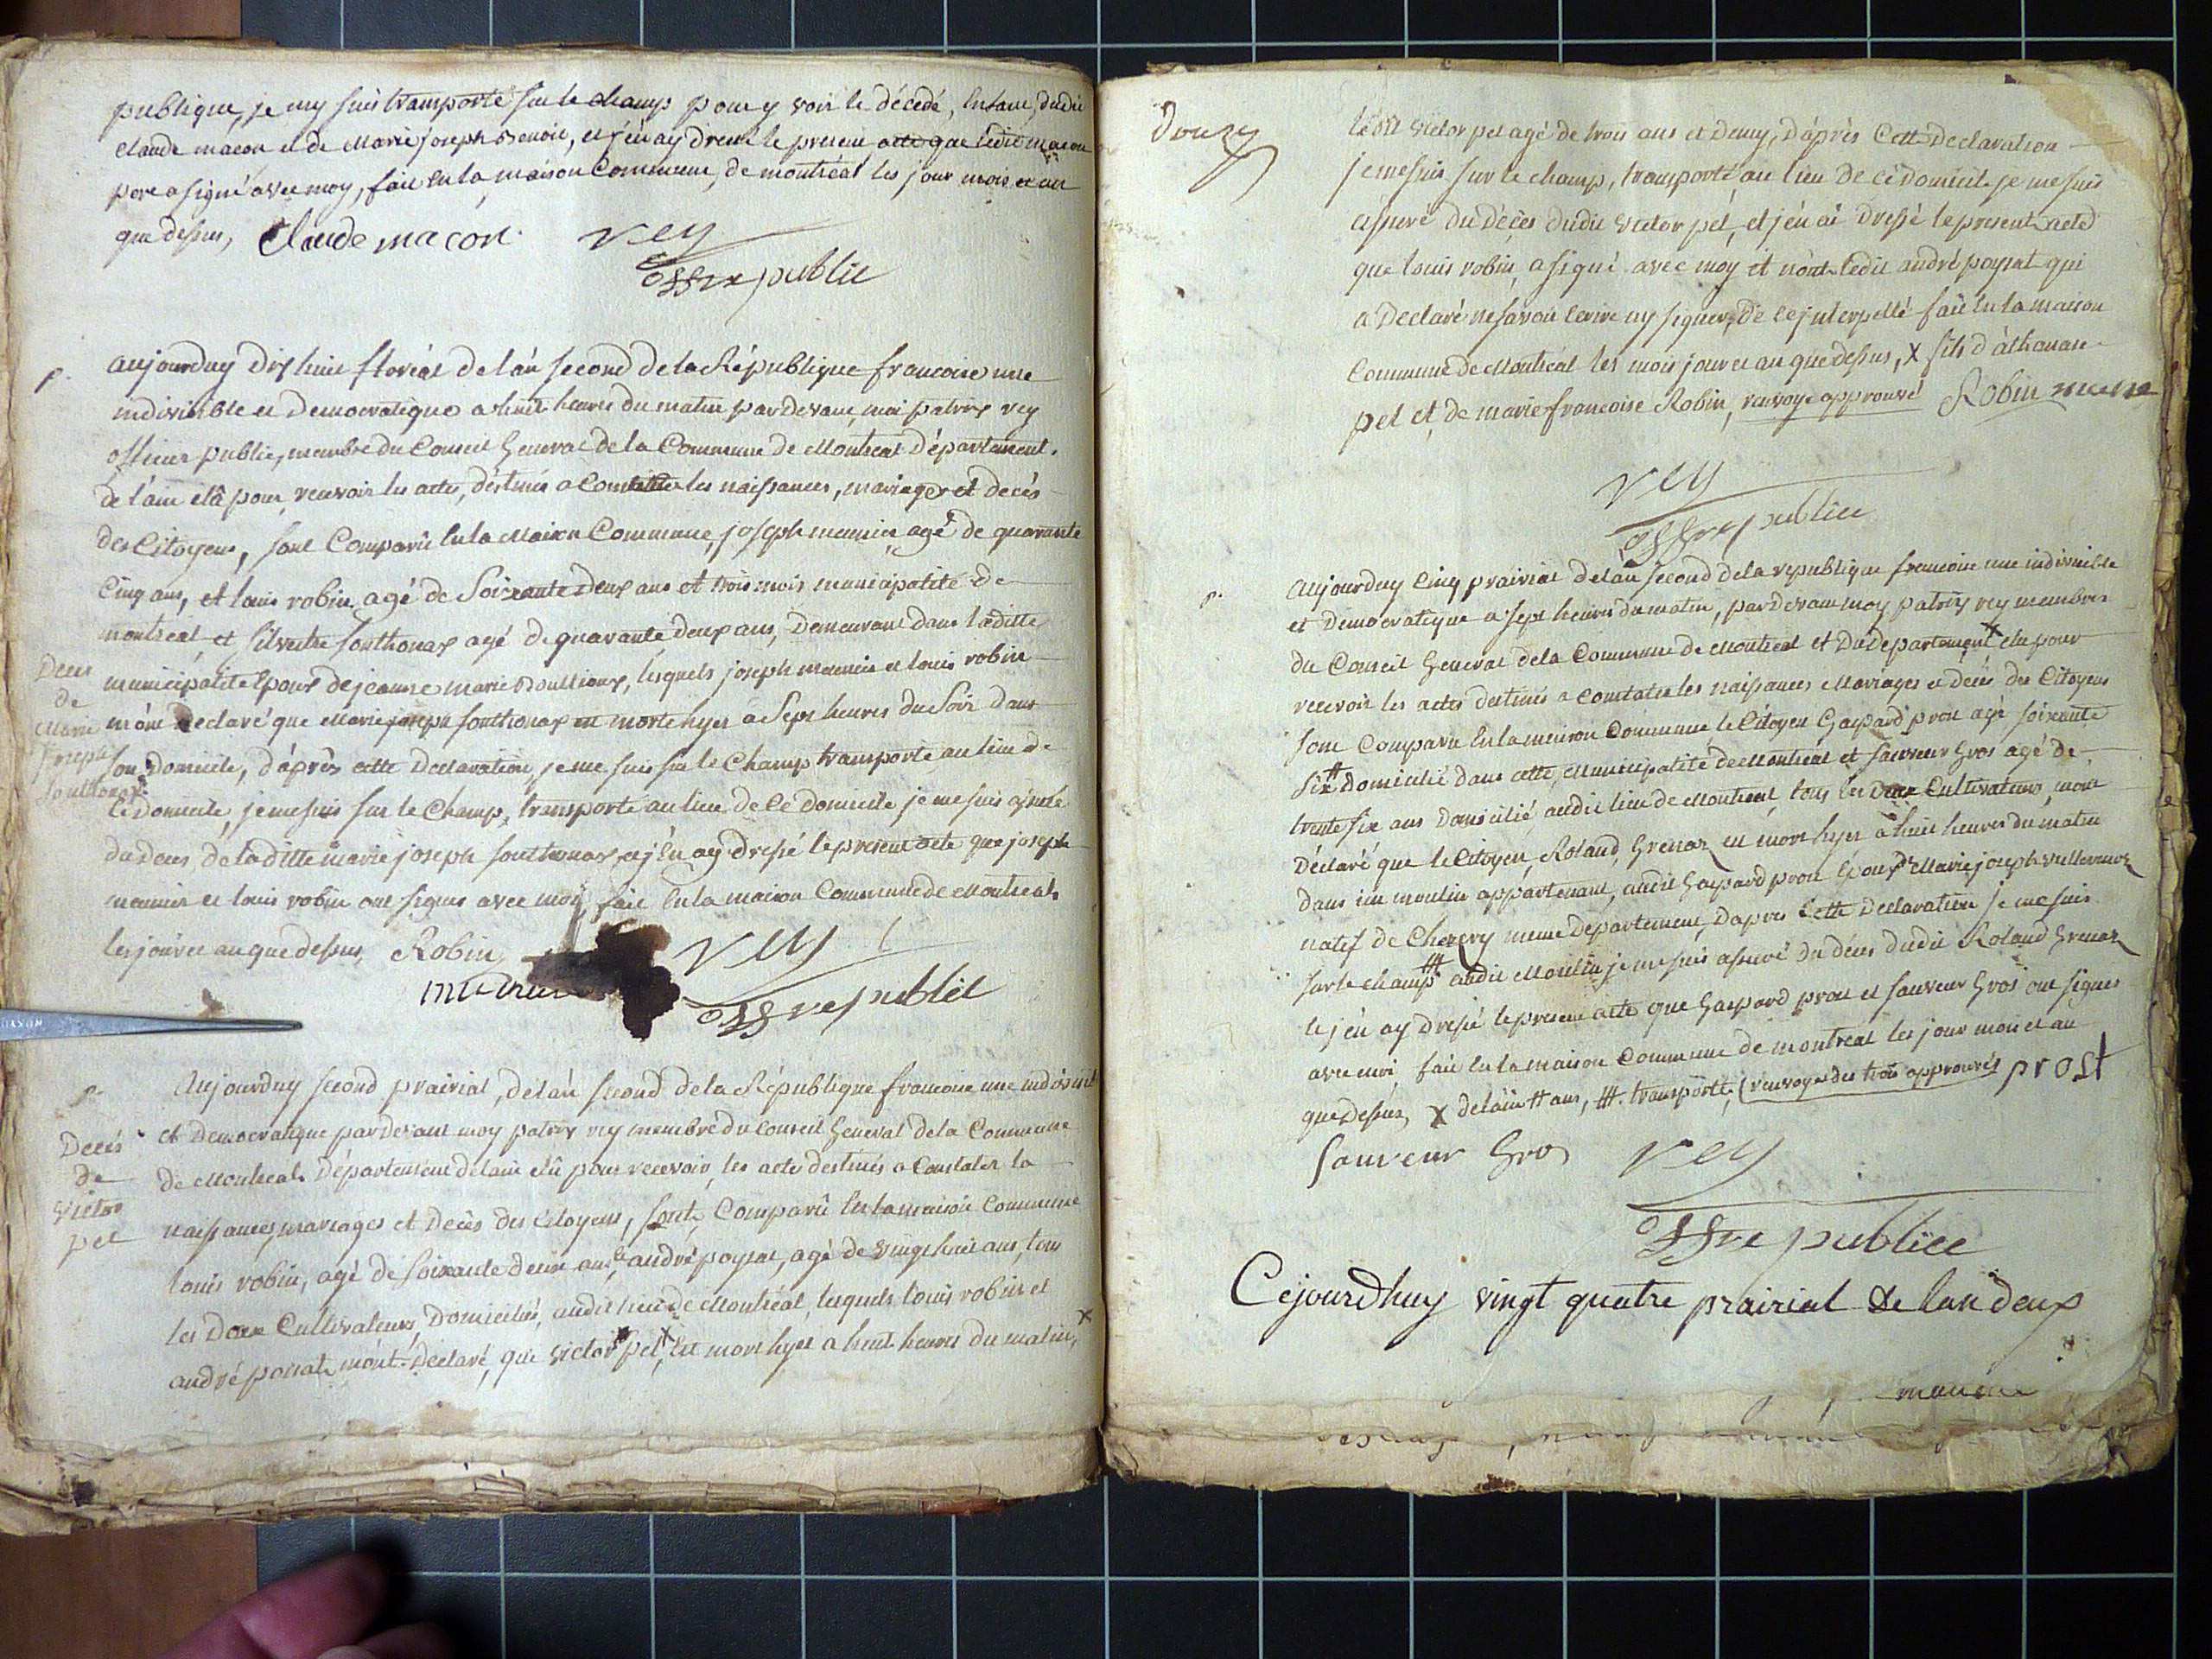 publique, je my suis transporté sur le champ pour y voir le décédé, enfant dudit
claude macon et de Marie joseph Benoit, et j'en ay dressé le present acte que ledit macon
pere a signé avec moy, fait en la maison Commune, de montréal les jour mois et an
que dessus, Claude macon. rey
offre public
p. aujourduy dix huit floréal de l'an second de la République francoise une
indivisible et Democratique a huit heures du matin pardevant moi patrix rey
officier public, membre du Conseil General de la Commune de Montreal Département
de l'ain elû pour recevoir les actes, destinés a Constater les naissances, mariages et decès
des Citoyens, sont Comparû en la Maison Commune, joseph meunier agé de quarante
Cinq ans, et louis robin agé de Soixante Deux ans et trois mois municipalité de
montreal, et silvestre southonax agé de quarante deux ans, Demeurant dans laditte
municipalité Epoux de jeanne marie lesquels joseph meunier et louis robin
Deces
de
Marie
joseph
southonax
m'ont Declaré que Marie joseph southonax est morte hyer à Sept heures du Soir dans
son Domicile, d'après cette Declaration, je me suis sur le Champ transporté au lieu de
ce Domicile, je me suis sur le Champ, transporté au lieu de ce Domicile je me suis assuré
du Deces de laditte marie joseph southonax et j'en ay dressé le present acte que joseph
meunier et louis robin ont signés avec moy, fait en la maison Commune de Montreal
les jour et an que dessus, Robin rey
offre public
p. Aujourduy second prairial, de l'an second de la République francoise une indivisible
Decès
de
Victor
pet
et Democratique par devant moy patrix rey membre du conseil General de la Commune
de Montreal Département de l'ain elû pour recevoir, les actes destinés a Constater la
naissances, mariages et Decès des Citoyens, sont, Comparû en la maison Commune
louis robin, agé de soixante deux ans, et andré poysat, agé de vingt huit ans, tous
les Deux Cultivateurs, Domiciliés, audit lieu de Montréal, lesquels louis robin et
andré poisat m'ont Declaré, que victor pet, X est mort hyer a huit heures du matin, X
Douze
ledit Victor pet agé de trois ans et Demy, D'après Cette Declaration
je me suis sur le champ, transporté au lieu De ce Domicile je me suis
assuré du Décès dudit victor pet, et j'en ai dressé le present acte
que louis robin, a signé avec moy et non ledit andré poysat qui
a Declaré ne savoir Ecrire ny signer, de ce interpellé fait en la maison
Commune de Montréal les mois jour et an que dessus, X fils d'athanase
pet et de marie francoise Robin, renvoye approuvé Robin
rey
offre public
p. Aujourduy Cinq prairial de l'an second de la republique francoise une indivisible
et Democratique a sept heures du matin, par Devant moy patrix rey membre
du Conseil General de la Commune de Montreal et Du Departement X elu pour
recevoir les actes destinés a constater les naissances Mariages et décès des Citoyens
sont Comparu en la maison Commune le Citoyen Gaspard prost agé soixante
six # Domicilié dans cette Municipalité de Montréal et sauveur Gros agé de
trente six ans Domicilié audit lieu de Montreal, tous les Deux Cultivateurs, m'ont
Déclaré que le Citoyen, Roland Grenaz est mort hyer a huit heures du matin
dans un moulin appartenant, audit Gaspard prost Epoux de Marie joseph
natif de Chezery meme Departement, D'apres Cette Declaration je me suis
sur le champ ### audit Moulin je me suis assuré du deces dudit Roland Grenaz
et j'en ay dressé le present acte que Gaspard prost et sauveur Gros ont signés
avec moi, fait en la maison Commune de montreal les jour mois et an
que Dessus, X de l'ain # ans, ###. transporté, renvoyes des trois approuvés prost
sauveur Gros rey
offre public
Cejourdhuy vingt quatre prairial de lan deux